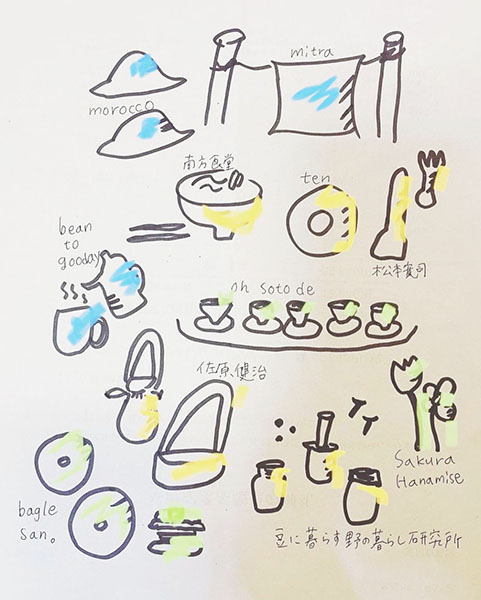 mitra
morocco
南方食堂
ten
bean
to
gooday
松本寛司
oh soto de
佐原健治
Sakura
Hanamise
bagle
san。
豆に暮らす野の暮らし研究所